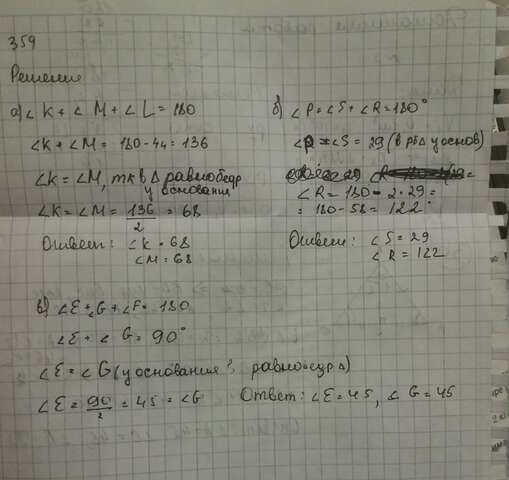 359
Решение
а) ∠K + ∠M + ∠L = 180
∠K + ∠M = 180 - 44 = 136
∠K = ∠M, т к в Δ равнобедр
у основания
∠K = ∠M = 136/2 = 68
Ответ: ∠K = 68
∠M = 68
б) ∠P = ∠S + ∠R = 180°
∠P = ∠S = 29 (в рбΔ у основ)
∠R = 180 - 2·29 =
= 180 - 58 = 122°
Ответ: ∠S = 29
∠R = 122
в) ∠E + ∠G + ∠F = 180
∠E + ∠G = 90°
∠E = ∠G (у основания в равнобедр Δ)
∠E = 90/2 = 45 = ∠G Ответ: ∠E = 45, ∠G = 45